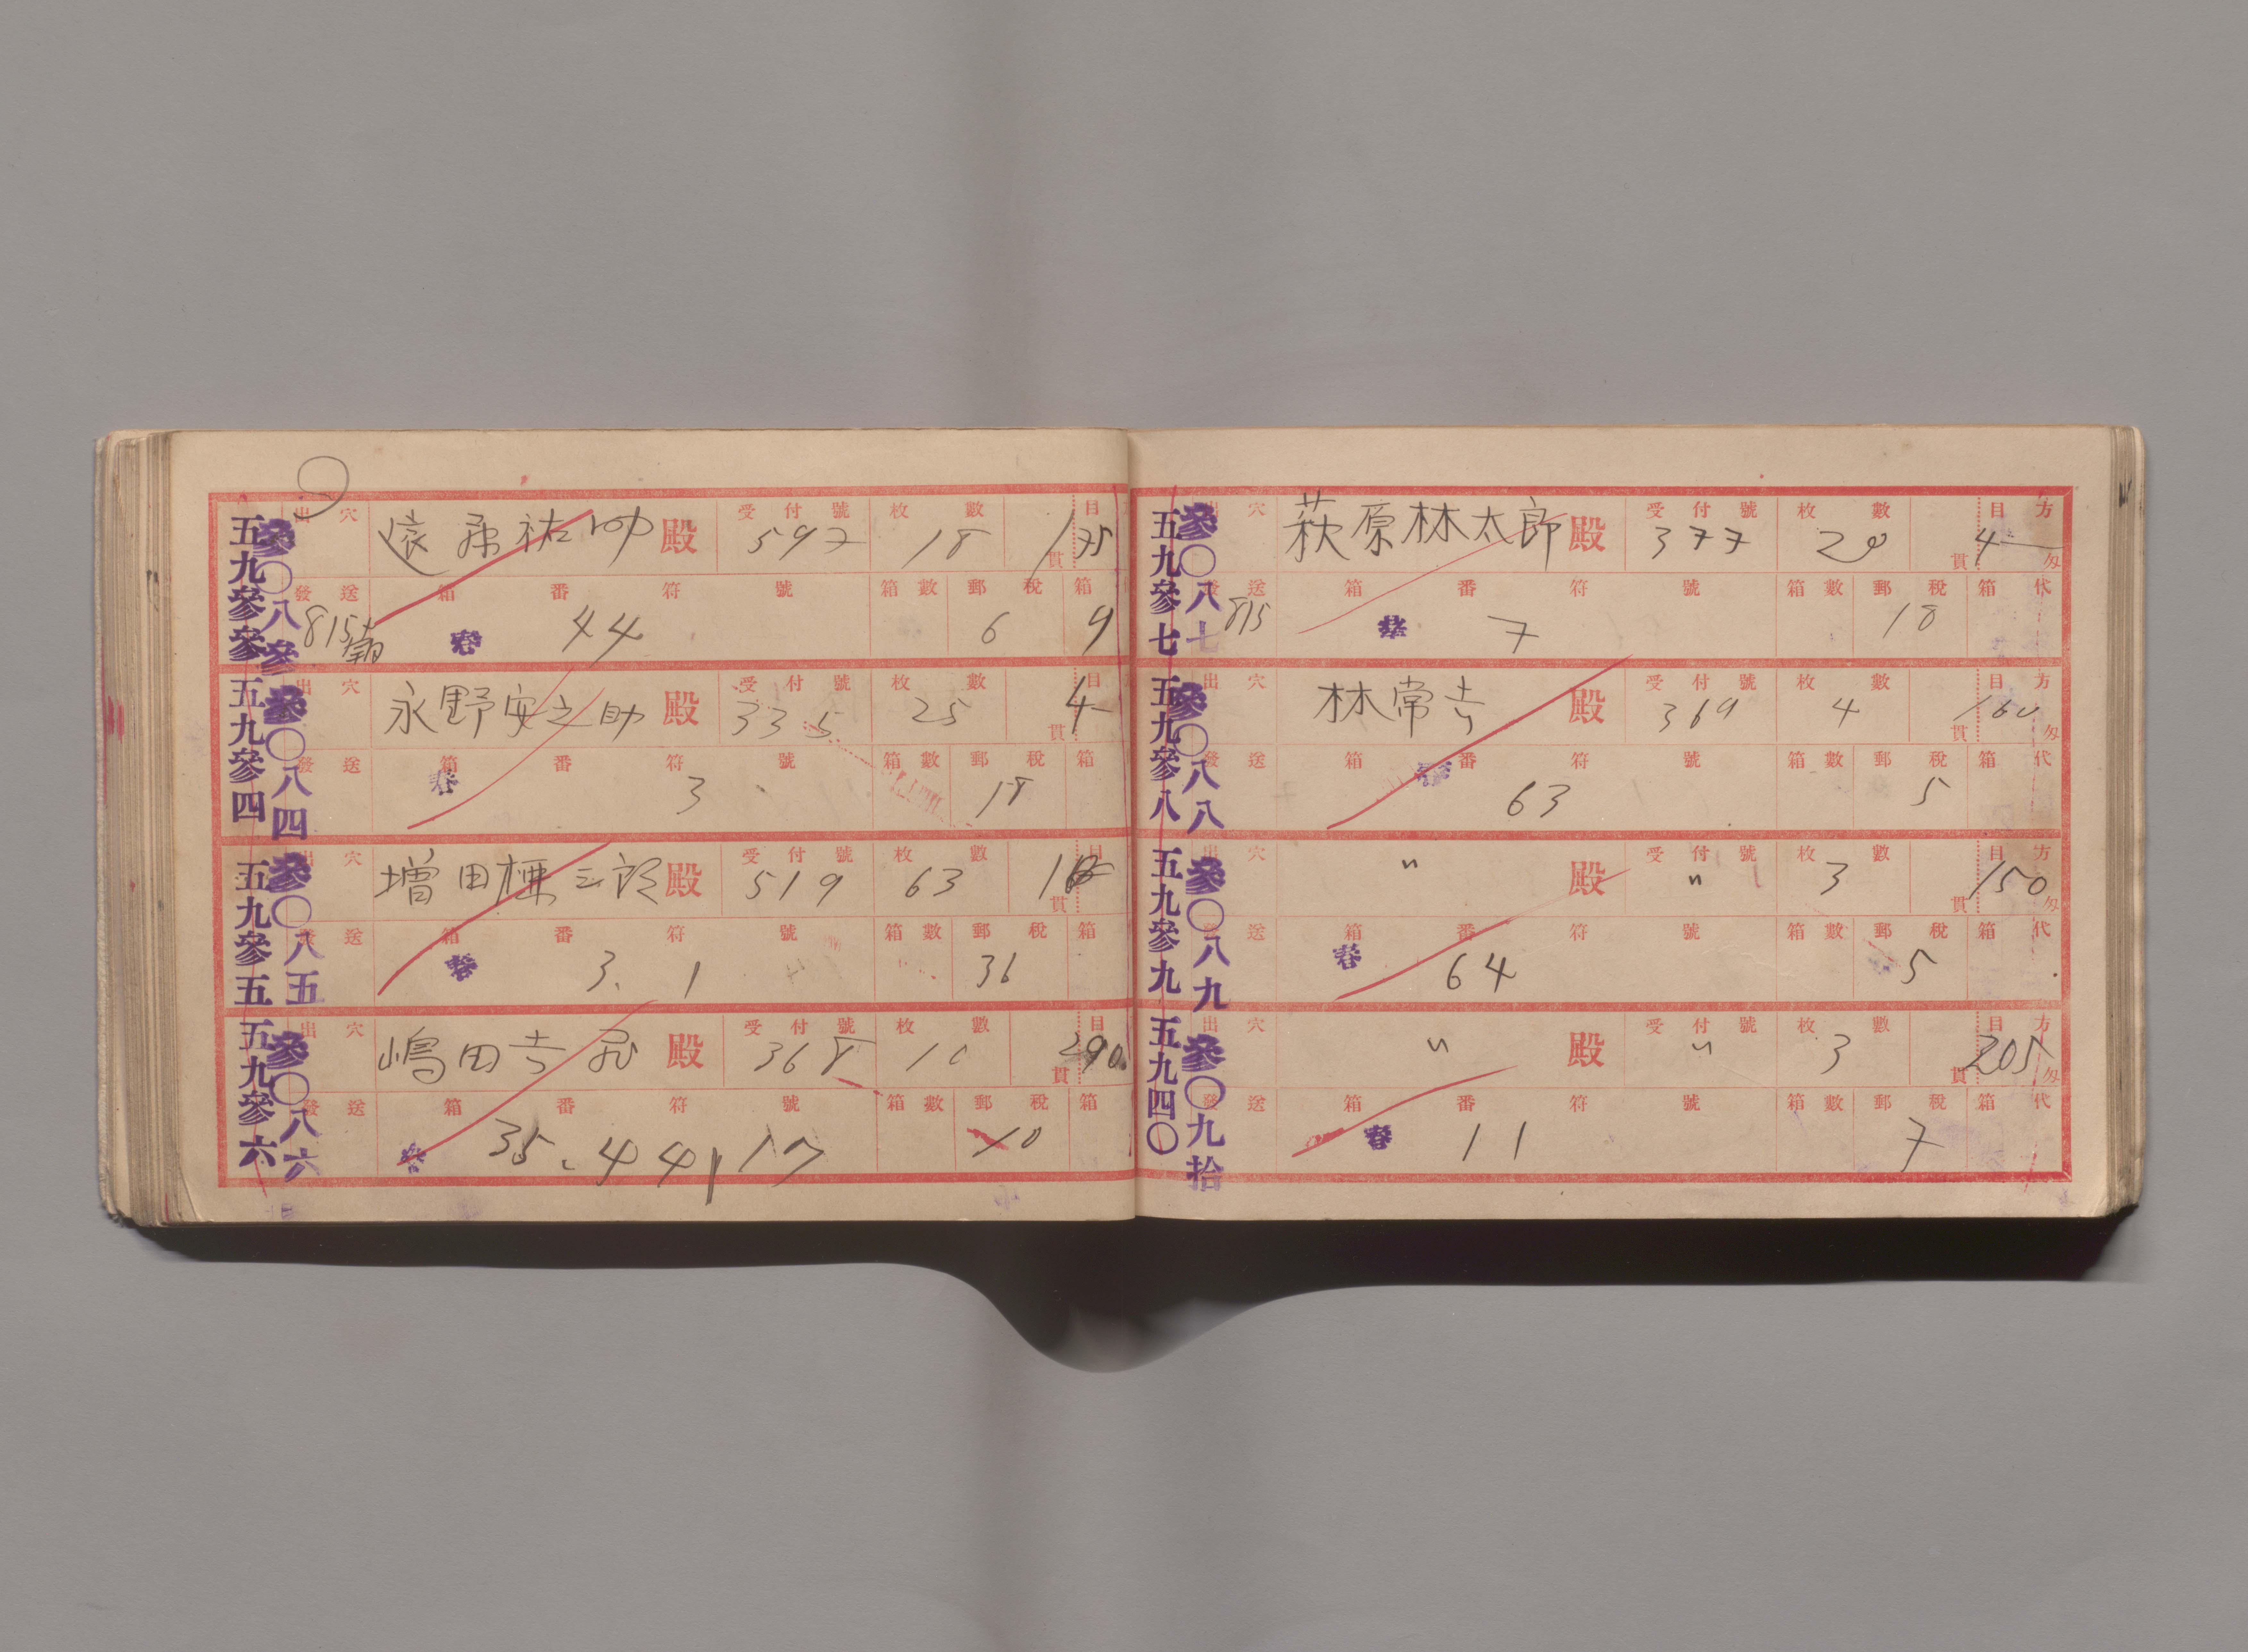 五九參參
參〇八參
出穴 遠藤祐 殿 受付號 597 枚數 18 目 貫 175
發送 815 箱番符號 春 44 箱數 郵稅 6 箱 9
五九參四
參〇八四
出穴 永野安之助 殿 受付號 335 枚數 25 目 貫 4
發送 箱番符號 春 3 箱數 郵稅 18 箱
五九參五
參〇八五
出穴 増田 三郎 殿 受付號 519 枚數 63 目 貫
發送 箱番符號 春 3. 1 箱數 郵稅 36 箱
五九參六
參〇八六
出穴 嶋田吉 殿 受付號 368 枚數 10 目 貫 290
發送 箱番符號 春 35. 44 17 箱數 郵稅 10 箱
五九參七
參〇八七
出穴 萩原林太郎 殿 受付號 377 枚數 28 目方 貫 4 匁
發送 815 箱番符號 春 7 箱數 郵稅 18 箱代
五九參八
參〇八八
出穴 林常吉 殿 受付號 369 枚數 4 目方 貫 160 匁
發送 箱番符號 春 63 箱數 郵稅 5 箱代
五九參九
參〇八九
出穴 〃 殿 受付號 〃 枚數 3 目方 貫 150 匁
發送 箱番符號 春 64 箱數 郵稅 5 箱代
五九四〇
參〇九拾
出穴 〃 殿 受付號 〃 枚數 3 目方 貫 205 匁
發送 箱番符號 春 11 箱數 郵稅 7 箱代